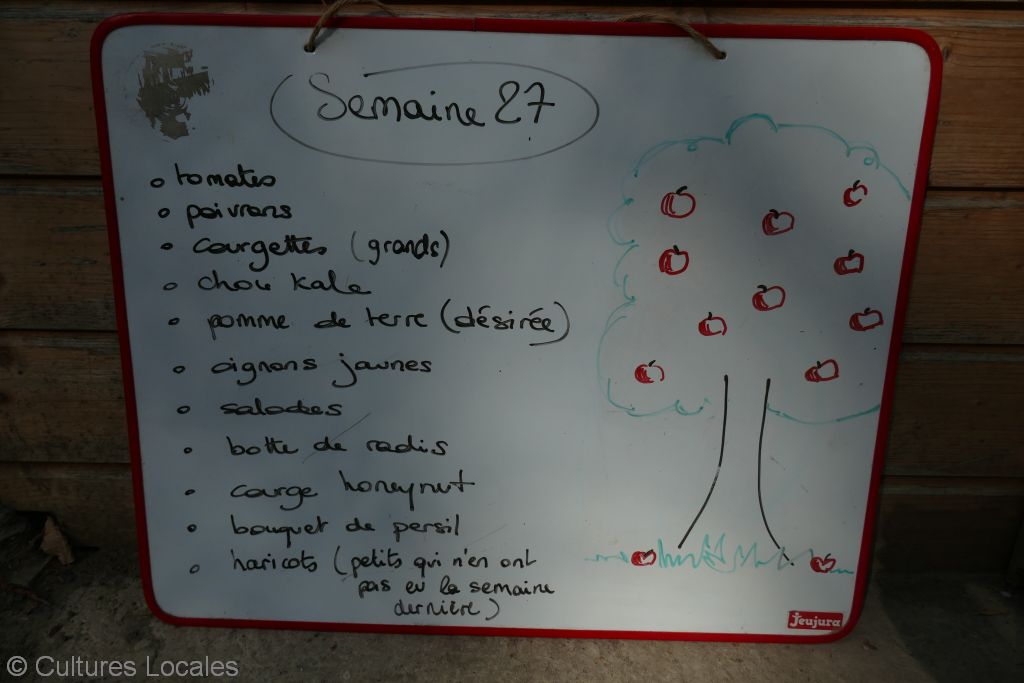 Semaine 27
tomates
poivrons
courgettes (grands)
chou kale
pomme de terre (désirée)
oignons jaunes
salades
botte de radis
courge honeynut
bouquet de persil
haricots (petits qui n'en ont
pas eu la semaine
dernière)
jeujura
© Cultures Locales